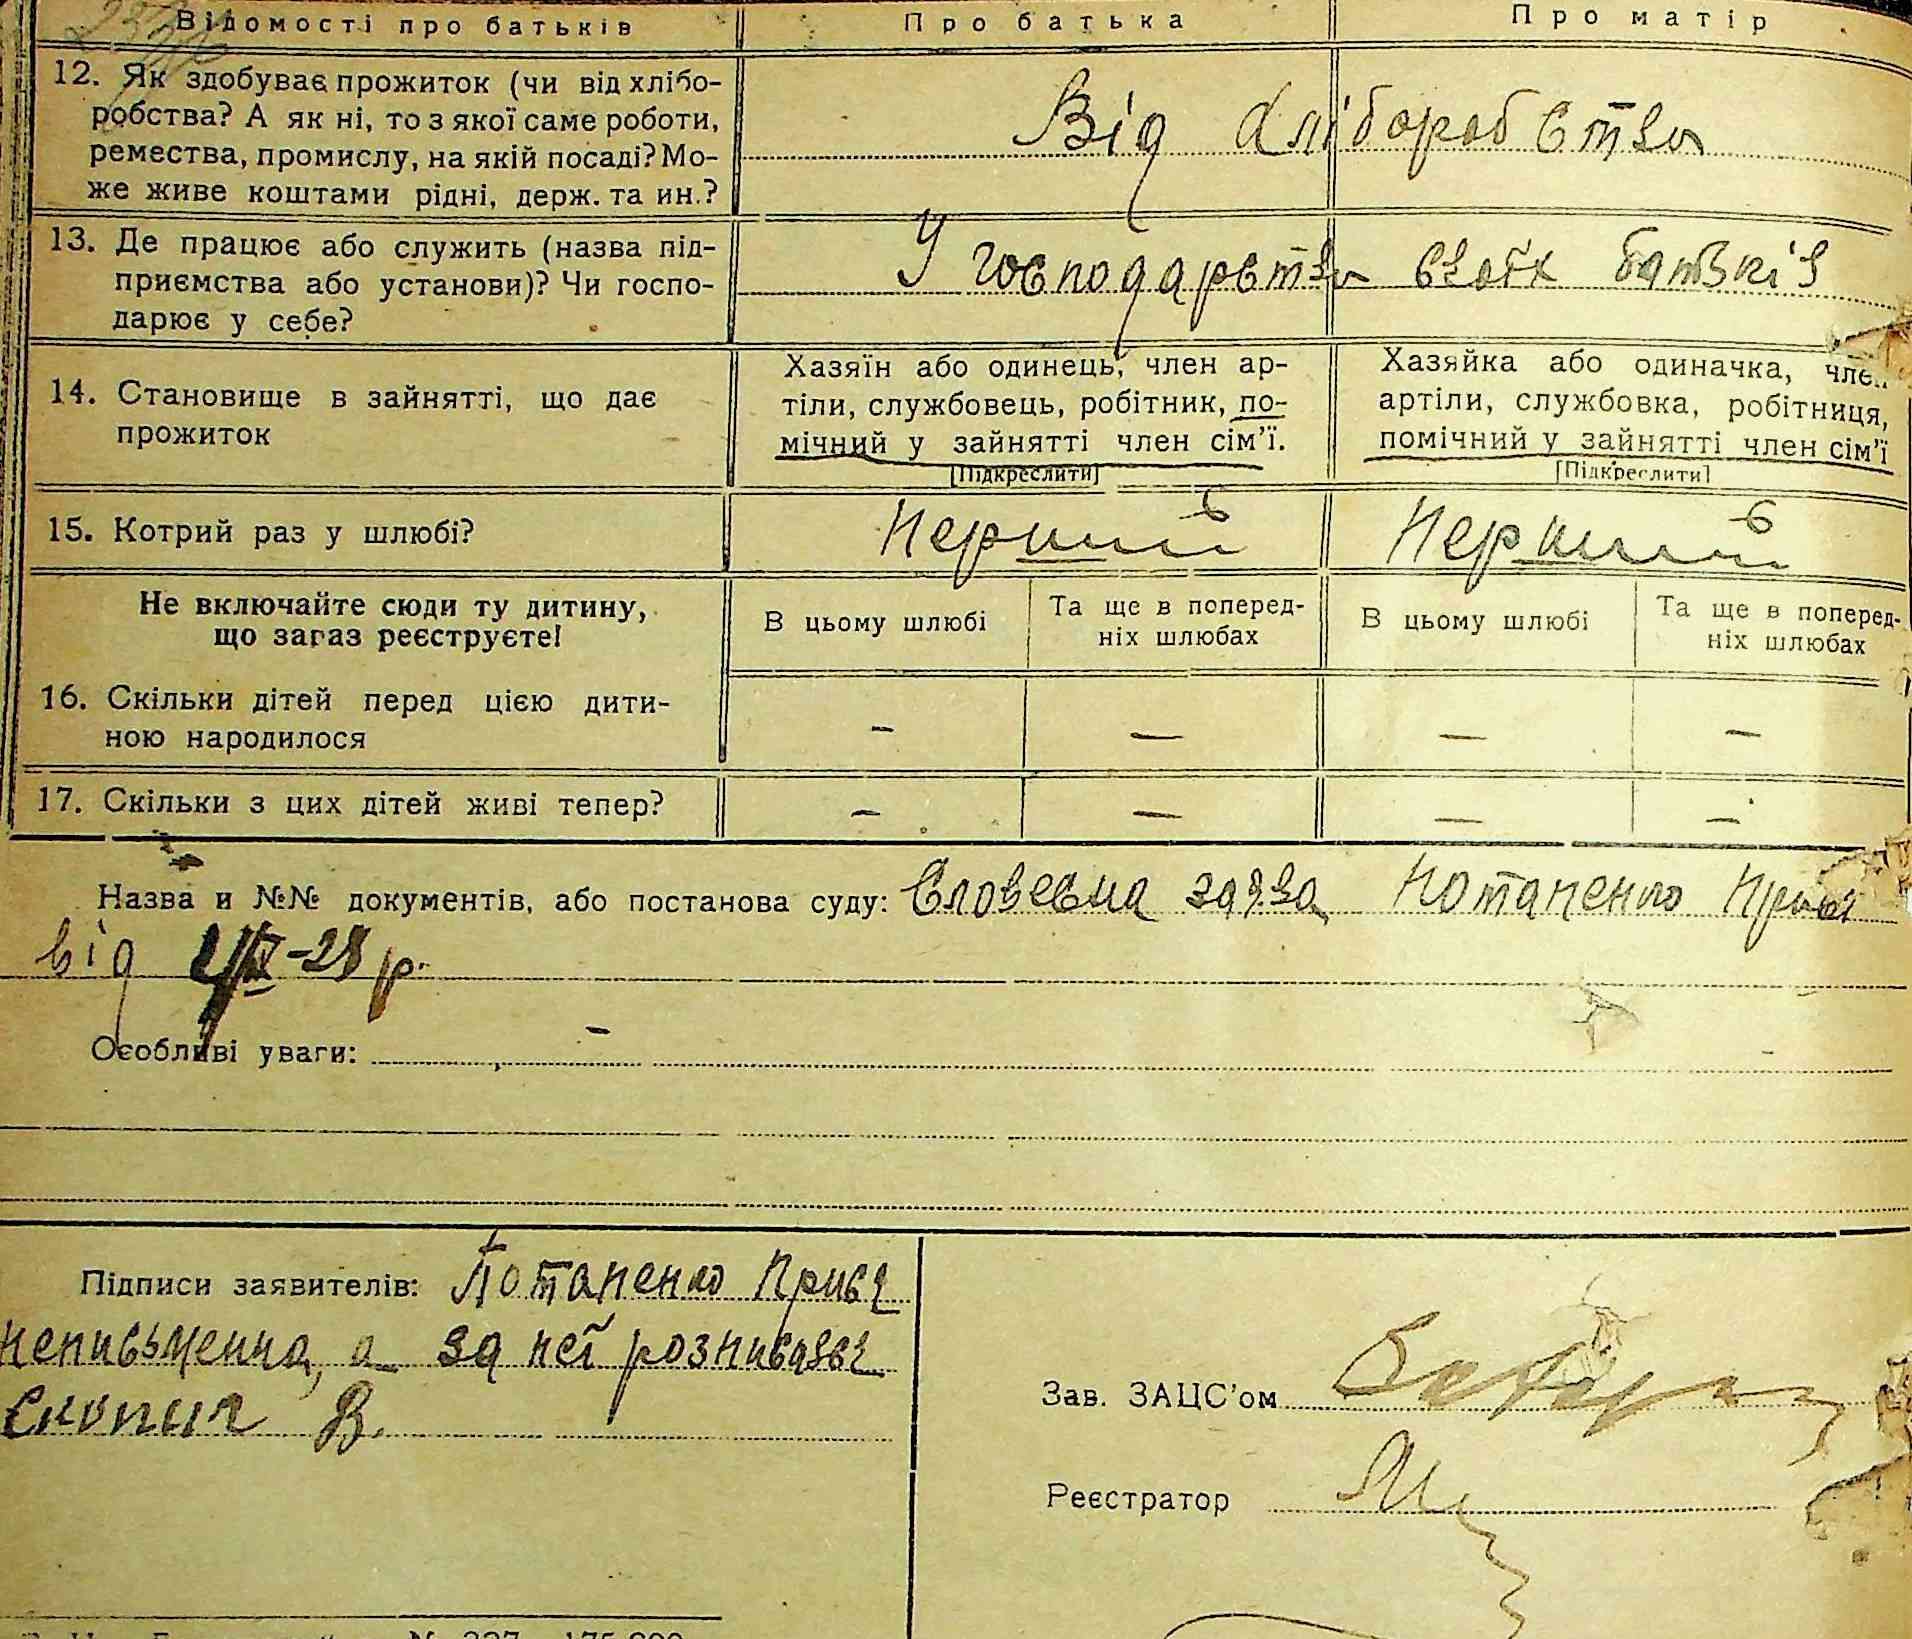 Відомості про батьків Про батька Про матір
12. Як здобуває прожиток (чи від хлібо-
робства? А як ні, то з якої саме роботи,
ремества, промислу, на якій посаді? Мо-
же живе коштами рідні, держ. та ин.?
Від хліборобства
13. Де працює або служить (назва під-
приємства або установи)? Чи госпо-
дарює у себе?
У господарства своїх батьків
14. Становище в зайнятті, що дає
прожиток
Хазяїн або одинець, член ар-
тіли, службовець, робітник, по-
мічний у зайнятті член сім'ї.
[Підкреслити]
Хазяйка або одиначка, член
артіли, службовка, робітниця,
помічний у зайнятті член сім'ї
[Підкреслити]
15. Котрий раз у шлюбі? Перший Перший
Не включайте сюди ту дитину,
що зараз реєструєте!
В цьому шлюбі
Та ще в поперед-
ніх шлюбах
В цьому шлюбі
Та ще в поперед-
ніх шлюбах
16. Скільки дітей перед цією дити-
ною народилося
– – – –
17. Скільки з цих дітей живі тепер? – – – –
Назва и №№ документів, або постанова суду: Словесна заява Потапенко
від -28 р.
Особливі уваги: –
Підписи заявителів: Потапенко
неписьменна, а за неї
В.
Зав. ЗАЦС'ом
Реєстратор